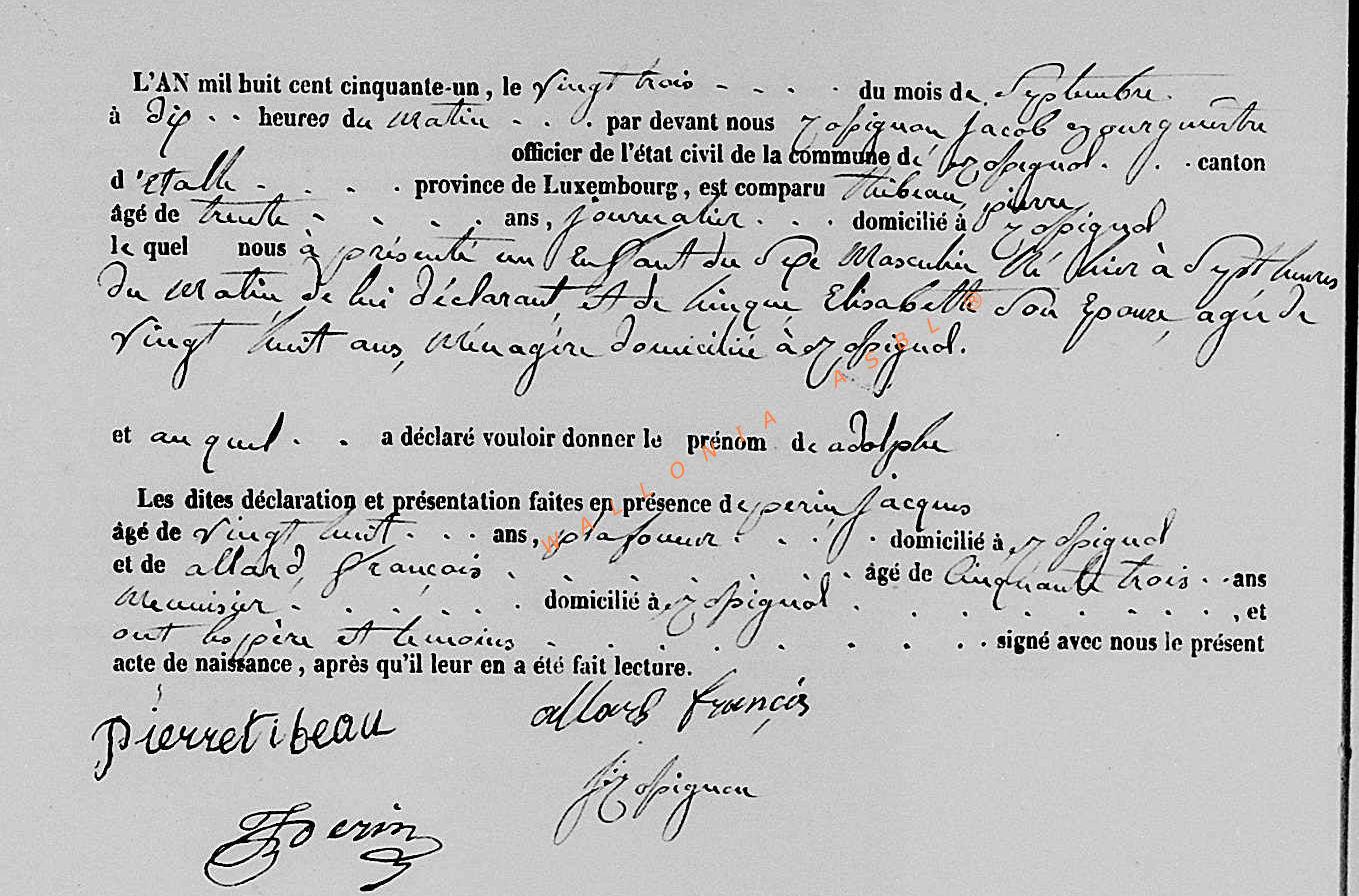 L'AN mil huit cent cinquante-un, le vingt trois - - - . du mois de Septembre.
à Dix . . heures du matin - . . . par devant nous Rossignon Jacob Bourgmestre
officier de l'état civil de la commune de Rossignol . . . canton
d'Etalle . . . . province de Luxembourg, est comparu thibeau pierre
âgé de trente - . . . ans, journalier . . . domicilié à Rossignol
le quel nous à présenté un Enfant du Sexe Masculin Né hier à Sept heures
Du matin de lui déclarant, et de Elisabeth Son Epouse, agée de
vingt huit ans, Ménagère domiciliée à Rossignol.
et au quel . . a déclaré vouloir donner le prénom de adolphe
Les dites déclaration et présentation faites en présence de perin Jacques
âgé de vingt huit . . . ans, plafoneur . . . . domicilié à Rossignol
et de allard, françois . . . . . . . âgé de Cinquante trois . . ans
Menuisier . . . . . . domicilié à Rossignol . . . . . . . . , et
ont les père et temoins . . . . . . . . signé avec nous le présent
acte de naissance, après qu'il leur en a été fait lecture.
pierre tibeau
allard françois
Rossignon
Perin
WALLONIA ASBL ®